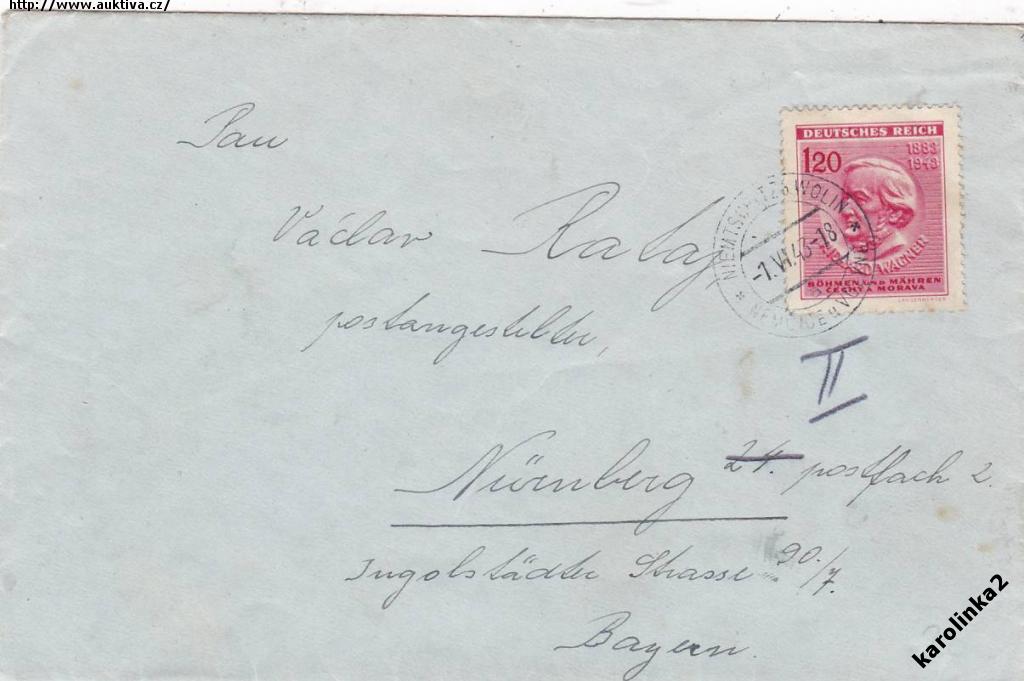 http://www.auktiva.cz/
Pan
DEUTSCHES REICH
1883
1943
120
RICHARD WAGNER
BÖHMEN UND MÄHREN
ČECHY A MORAVA
NIEMTSCHITZ B. WOLIN
-1.VI.43-18
NĚMČICE U V
Václav Rataj
postangestellter,
II
Nürnberg 24. postfach 2.
Ingolstädter Strasse 90/7.
Bayern.
karolinka2